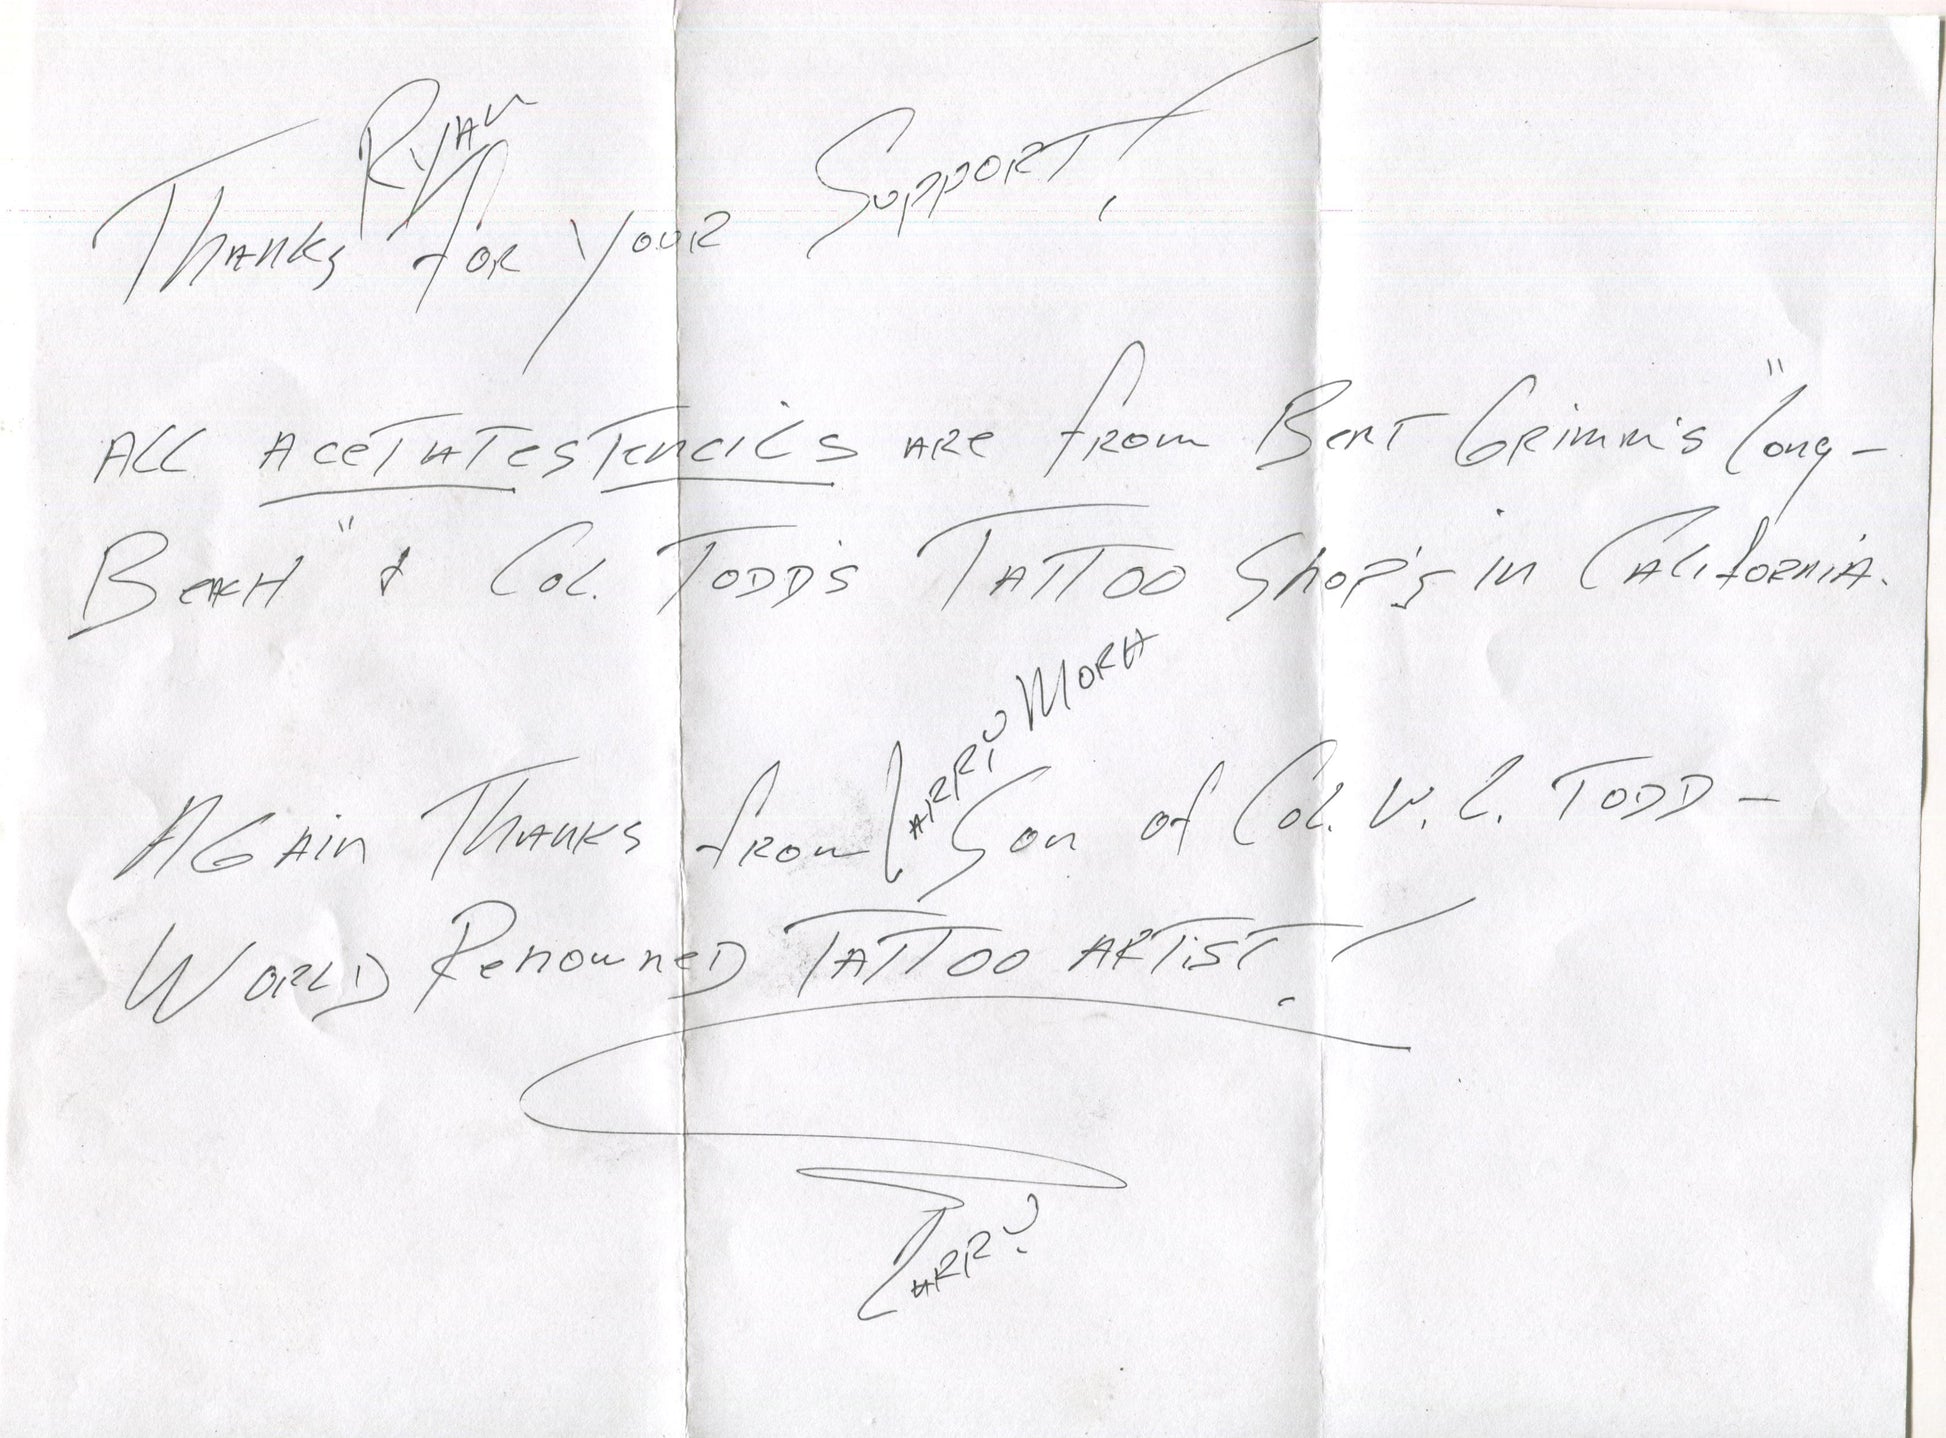 Thanks Ryan for your Support!
All acetate stencils are from Bert Grimm's "Long-
Beach" & Col. Todd's Tattoo Shop's in California.
Again Thanks from Larry Mora Son of Col. W. L. Todd -
World Renowned Tattoo Artist!
Larry